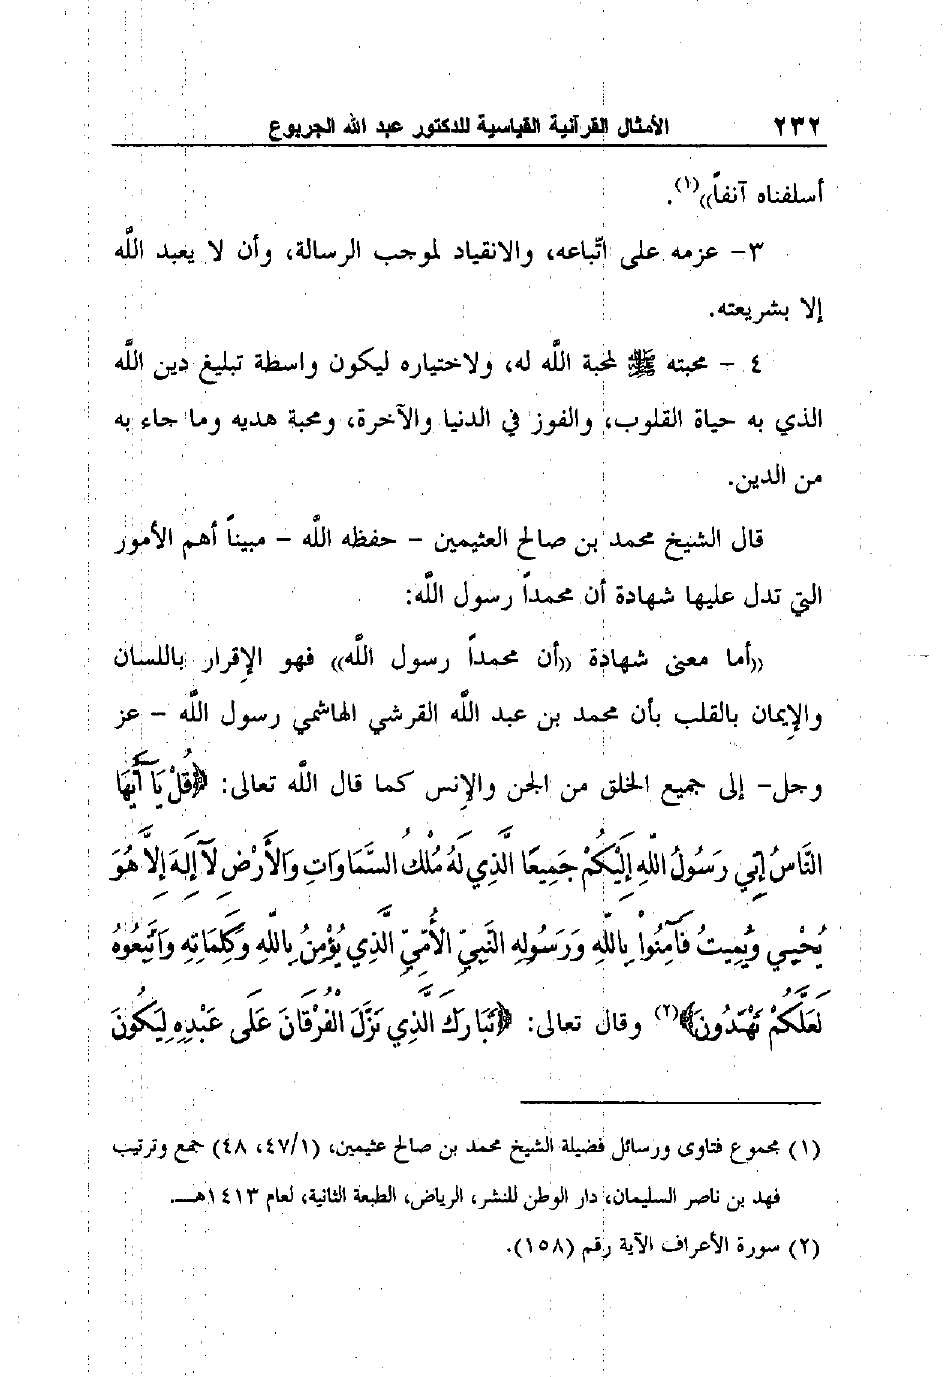 ٢٣٢ الأمثال القرآنية القياسية للدكتور عبد الله الجربوع
أسلفناه آنفاً))(١).
٣- عزمه على اتّباعه، والانقياد لموجب الرسالة، وأن لا يعبد اللَّه
إلا بشريعته.
٤ - محبته ﷺ لمحبة اللَّه له، ولاختياره ليكون واسطة تبليغ دين اللَّه
الذي به حياة القلوب، والفوز في الدنيا والآخرة، ومحبة هديه وما جاء به
من الدين.
قال الشيخ محمد بن صالح العثيمين - حفظه اللَّه - مبيناً أهم الأمور
التي تدل عليها شهادة أن محمداً رسول اللَّه:
((أما معنى شهادة ((أن محمداً رسول اللَّه)) فهو الإقرار باللسان
والإيمان بالقلب بأن محمد بن عبد اللَّه القرشي الهاشمي رسول اللَّه - عز
وجل- إلى جميع الخلق من الجن والإنس كما قال اللَّه تعالى: ﴿قُلْ يَا أَيُّهَا
النَّاسُ إِنِّي رَسُولُ اللَّهِ إِلَيْكُمْ جَمِيعًا الَّذِي لَهُ مُلْكُ السَّمَاوَاتِ وَالأَرْضِ لَآ إِلَهَ إِلاَّ هُوَ
يُحْيِي وَيُمِيتُ فَآمِنُواْ بِاللَّهِ وَرَسُولِهِ النَّبِيِّ الأُمِّيِّ الَّذِي يُؤْمِنُ بِاللَّهِ وَكَلِمَاتِهِ وَاتَّبِعُوهُ
لَعَلَّكُمْ تَهْتَدُونَ﴾(٢) وقال تعالى: ﴿تَبَارَكَ الَّذِي نَزَّلَ الْفُرْقَانَ عَلَى عَبْدِهِ لِيَكُونَ
(١) مجموع فتاوى ورسائل فضيلة الشيخ محمد بن صالح عثيمين، (٤٧/١، ٤٨) جمع وترتيب
فهد بن ناصر السليمان، دار الوطن للنشر، الرياض، الطبعة الثانية، لعام ١٤١٣هـ.
(٢) سورة الأعراف الآية رقم (١٥٨).